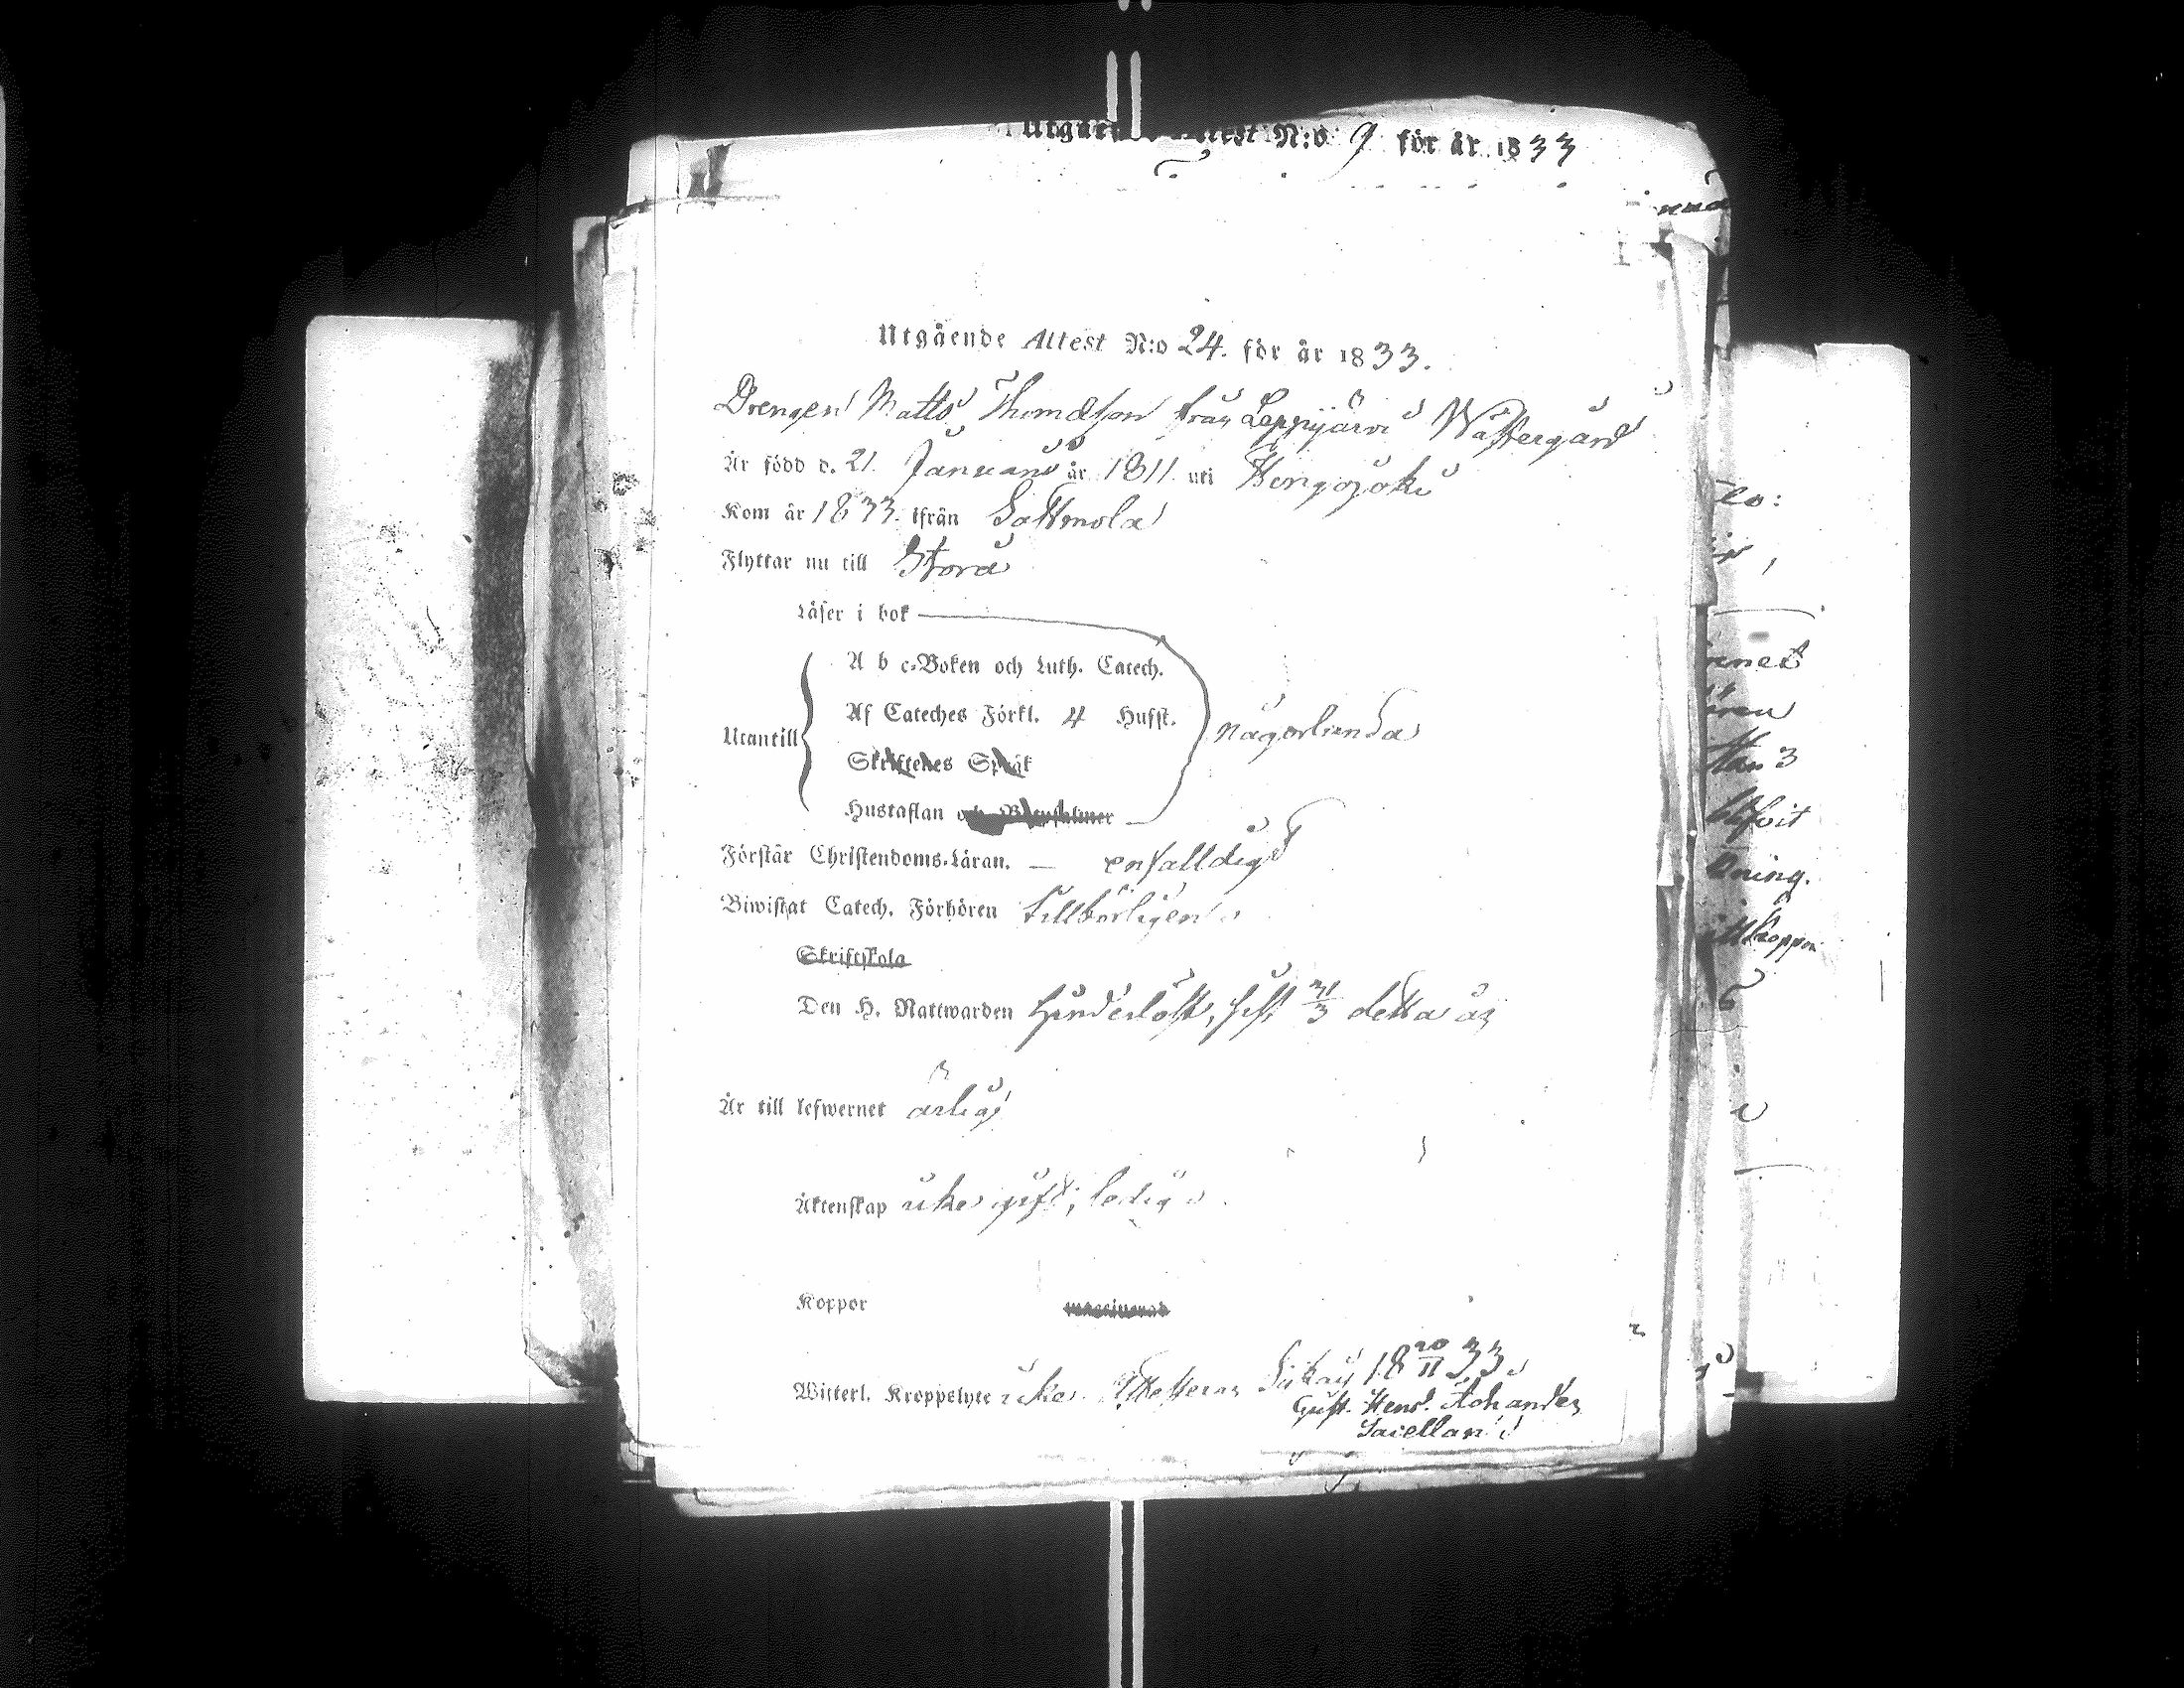 Utgående Attest N:o 9 för år 1833
Utgående Attest N:o 24. för år 1833.
Drengen Matts Thomasson från Leppijärvi Wästergård
Är född d. 21. Januari år 1811. uti Hengojoki
Kom år 1833. ifrån Sastmola
Flyttar nu till Storå
Läser i bok
A b c-Boken och Luth. Catech.
Af Cateches Förkl. 4 Hufst.
Utantill någorlunda
Skriftenes Språk
Hustaflan och Botpsalmer
Förstår Christendoms-Läran. — enfalldigt
Biwistat Catech. Förhören tillbörligen
Skriftskola
Den H. Nattwarden hinderlöst, sist 31/3 detta år
Är till lefwernet ärlig
Äktenskap icke gift, ledig.
Koppor vaccinerad
Witterl. Kroppslyte icke. 18 20/11 33.
Gust. Henr.